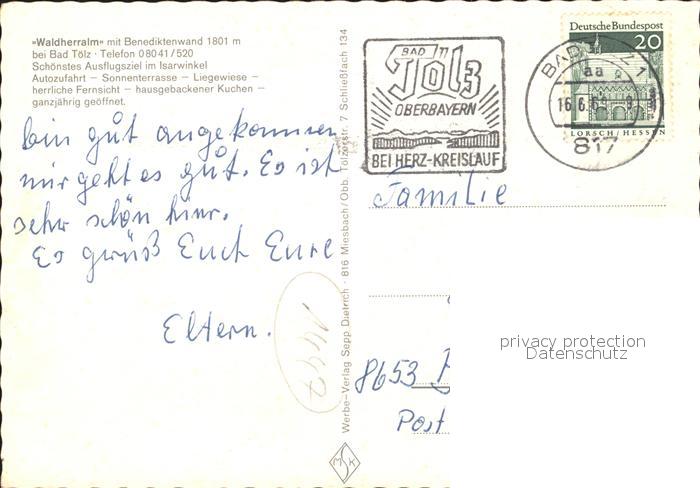 »Waldherralm« mit Benediktenwand 1801 m
bei Bad Tölz · Telefon 08041/520
Schönstes Ausflugsziel im Isarwinkel
Autozufahrt — Sonnenterrasse — Liegewiese —
herrliche Fernsicht — hausgebackener Kuchen —
ganzjährig geöffnet.
bin gůt angekommen
mir geht es gůt. Es ist
sehr schön hier.
Es grüß Euch Eure
Eltern.
1447
Werbe-Verlag Sepp Dietrich · 816 Miesbach/Obb. Tölzerstr. 7 Schließfach 134
MSK
BAD
Tölz
OBERBAYERN
BEI HERZ-KREISLAUF
Deutsche Bundespost
20
LORSCH/HESSEN
BAD TÖLZ 1
aa
16.6.69
817
Familie
8653
Post
privacy protection
Datenschutz